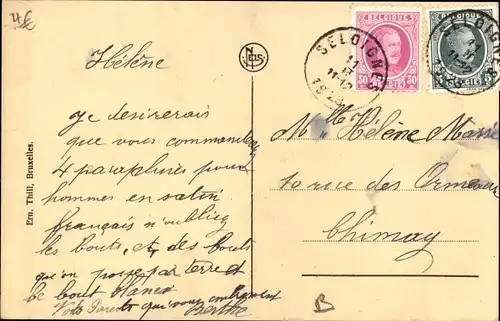 4€
Hélène
Je désirerais
que vous commandiez
4 parapluies pour
hommes en satin
français n'oubliez
les bouts, et des bouts
qu'on pose par terre et
le bout blanc
Berthe
Ern. Thill, Bruxelles.
NELS
SELOIGNES
BELGIQUE
30 30
BELGIQUE
SELOIGNES
Mlle Hélène Massé
10 rue des Ormeaux
Chimay
B